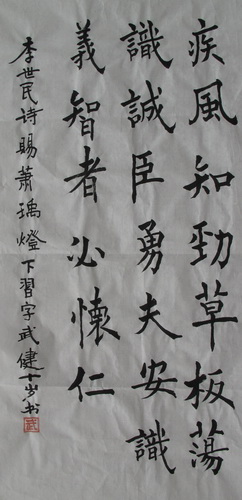 疾風知勁草板蕩
識誠臣勇夫安識
義智者必懷仁
李世民诗賜蕭瑀燈下習字武健十岁书
武